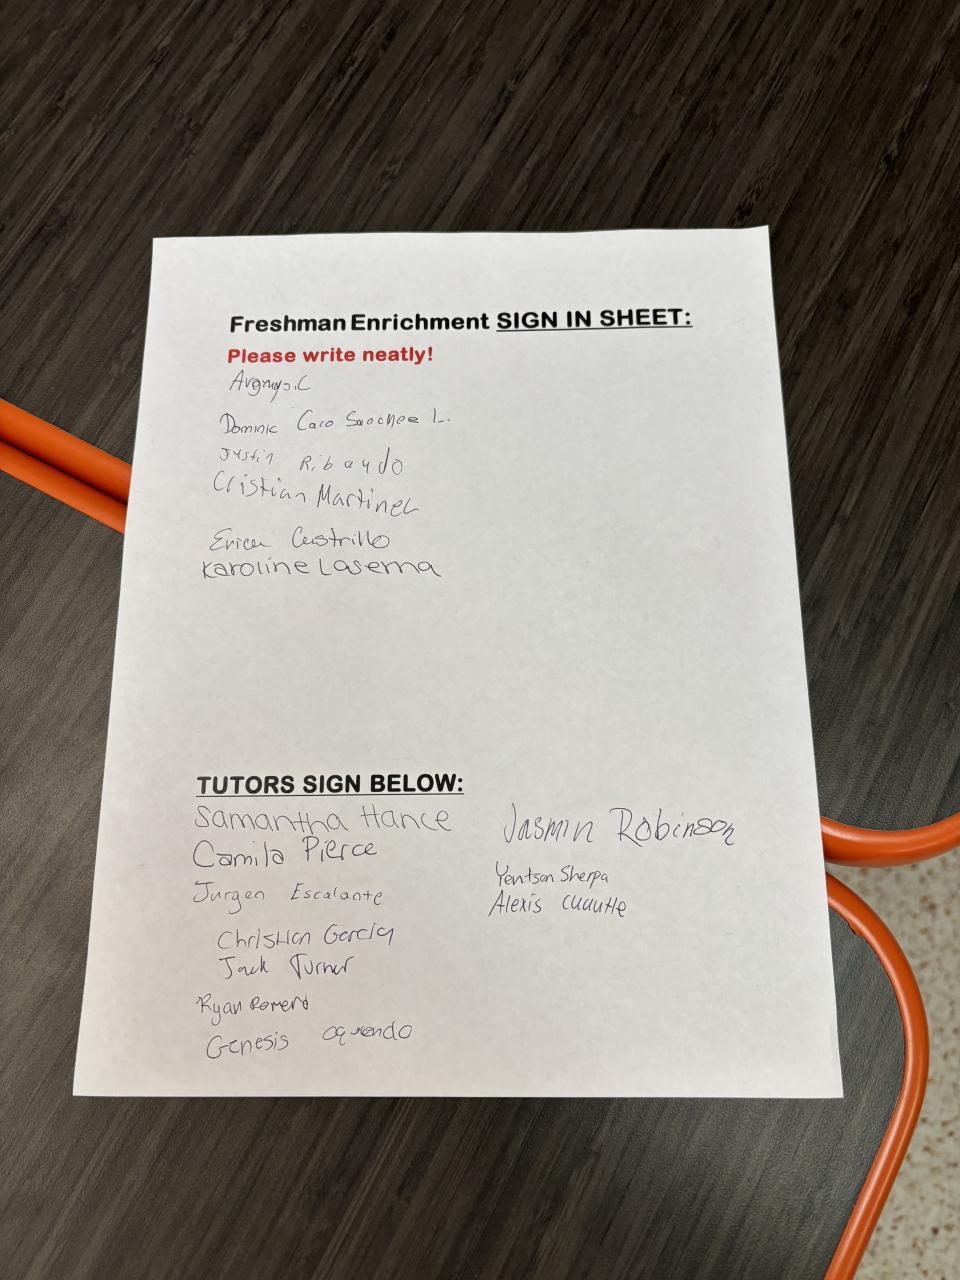 Freshman Enrichment SIGN IN SHEET:
Please write neatly!
Dominic Caro Sanchee L.
Justin Ribaudo
Cristian Martinez
Erica Castrillo
Karoline Laserna
TUTORS SIGN BELOW:
Samantha Hance
Camila Pierce
Jurgen Escalante
Christian Garcia
Jack Turner
Ryan Romero
Genesis Oquendo
Jasmin Robinson
Yentson Sherpa
Alexis Cuautle